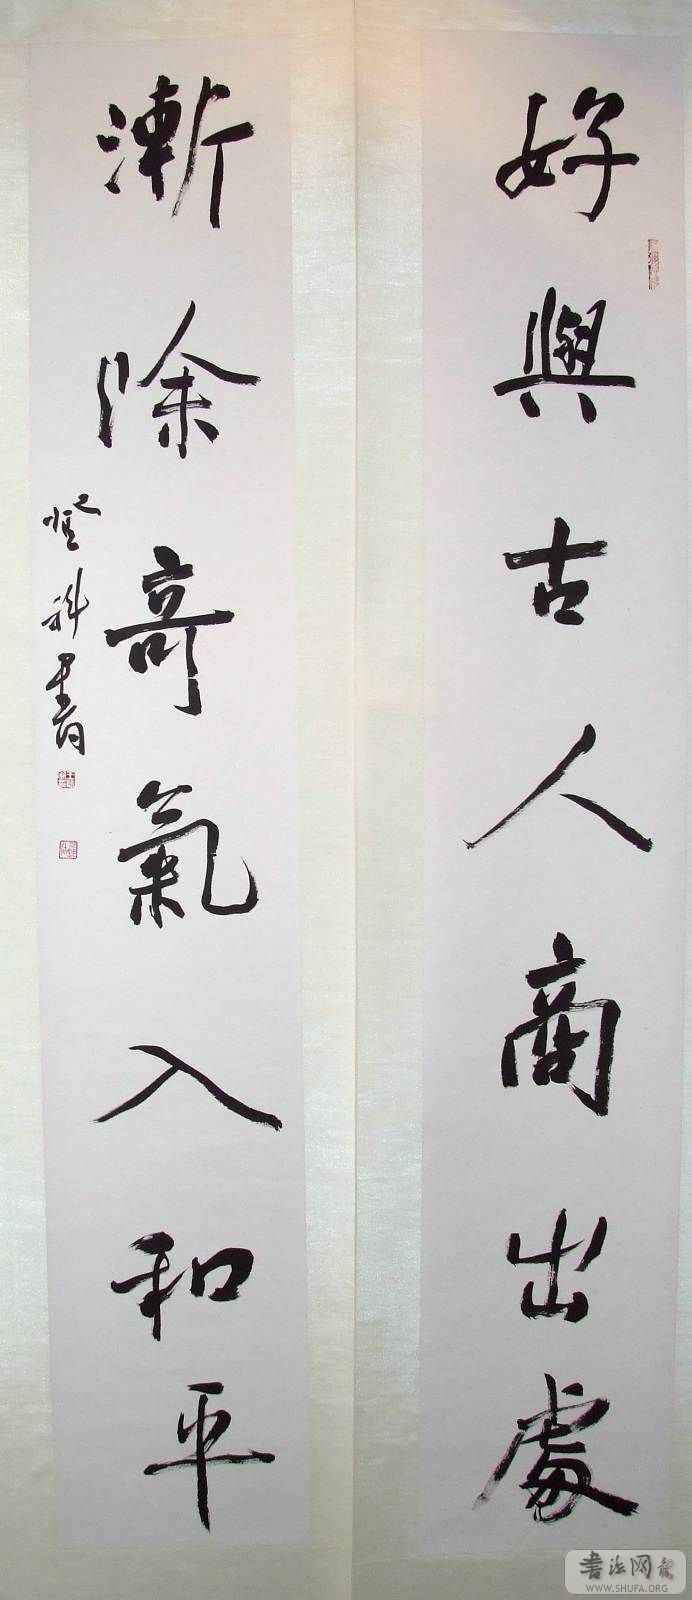 好與古人商出處
漸除奇氣入和平
登科書
书法网
WWW.SHUFA.ORG